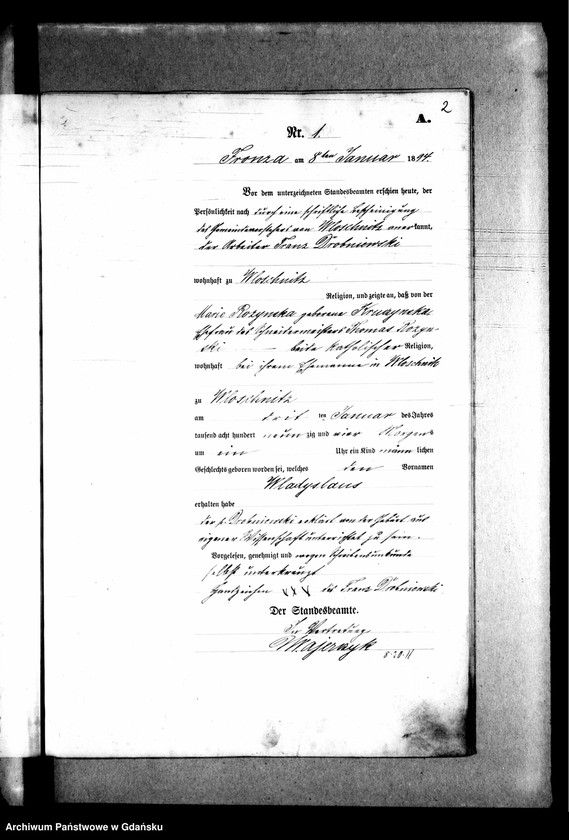 2
A.
Nr. 1.
Fronza am 8ten Januar 1894.
Vor dem unterzeichneten Standesbeamten erschien heute, der
Persönlichkeit nach durch eine schriftliche Bescheinigung
des Gemeindevorstehers von Wloschnitz anerkannt,
der Arbeiter Franz Drobniewski
wohnhaft zu Wloschnitz
Religion, und zeigte an, daß von der
Marie Rozynska geborene
Ehefrau des Schneidermeisters Thomas Rozyn-
ski — beide katholischer Religion,
wohnhaft bei ihrem Ehemanne in Wloschnitz
zu Wloschnitz
am drit ten Januar des Jahres
tausend acht hundert neun zig und vier Morgens
um ein Uhr ein Kind männ lichen
Geschlechts geboren worden sei, welches den Vornamen
Wladyslaus
erhalten habe
der p. Drobniewski erklärt von der Geburt aus
eigener Wissenschaft unterrichtet zu sein.
Vorgelesen, genehmigt und wegen Schreibensunkunde
selbst unterkreuzt
Handzeichen XXX des Franz Drobniewski
Der Standesbeamte.
In Vertretung
Majerzyk
Archiwum Państwowe w Gdańsku